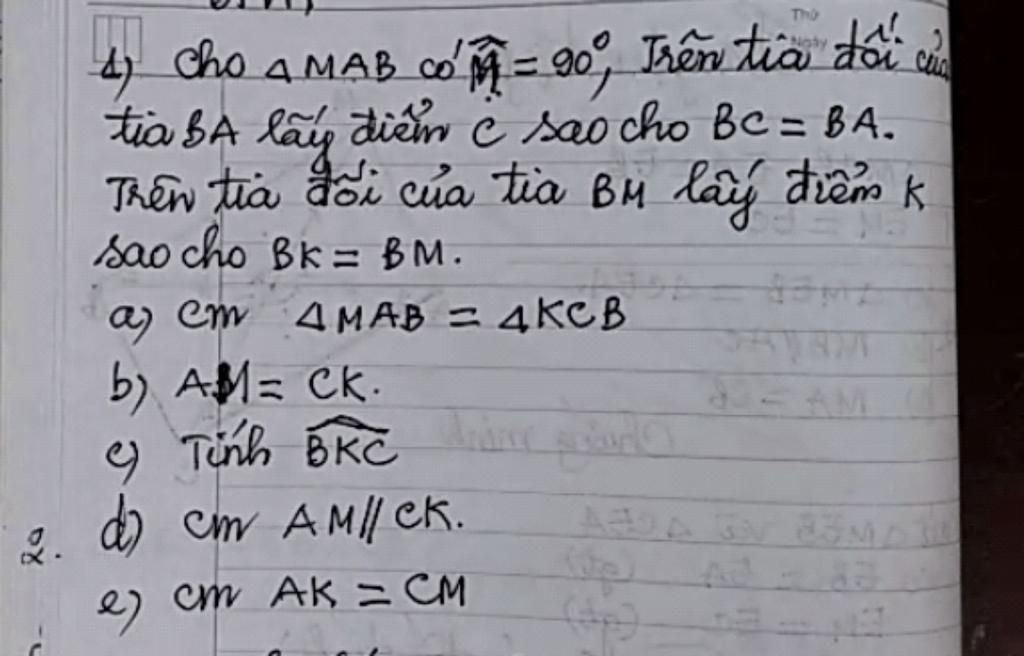 1) Cho △MAB có M̂ = 90°, Trên tia đối của
tia BA lấy điểm C sao cho BC = BA.
Trên tia đối của tia BM lấy điểm K
sao cho BK = BM.
a) cm △MAB = △KCB
b) AM = CK.
c) Tính BKC
d) cm AM // CK.
2.
e) cm AK = CM